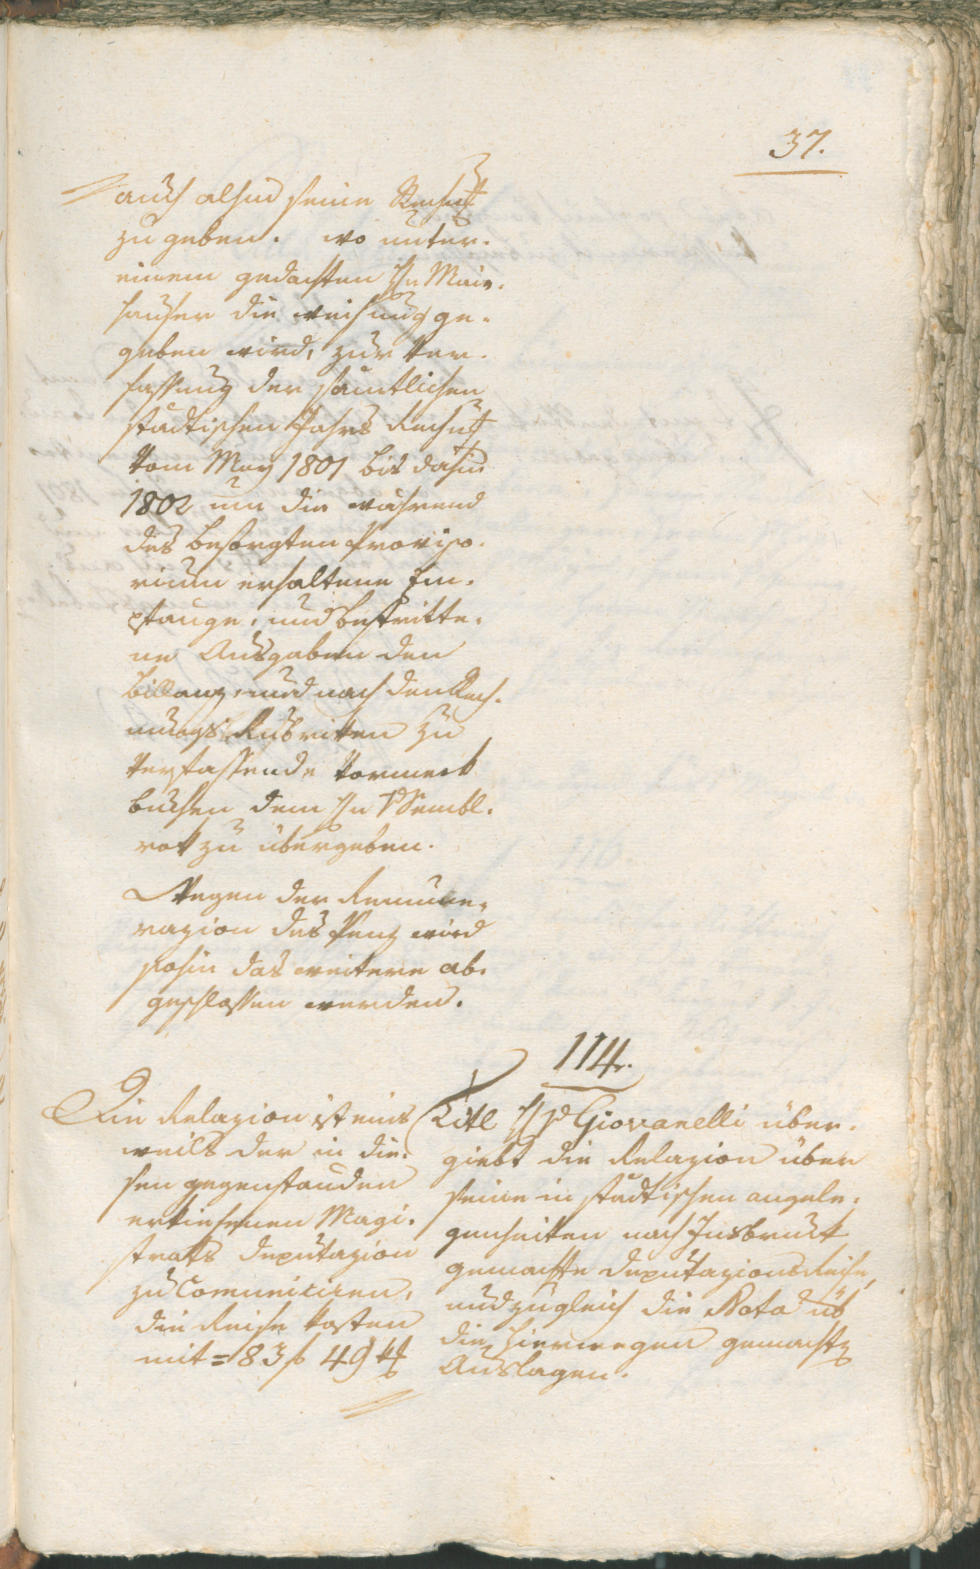 37.
auch alhin seine Rechnug
zu geben. wo unter-
einem gedachten Hn Mair-
hauser die weisung ge-
geben wird, zur Ver-
fassung der sämtlichen
städtischen Jahrs Rechnug
vom May 1801 bis dahin
1802 um die während
des besorgten Proviso-
rium erhaltene Em-
pfänge, und bestritte-
ne Ausgaben den
billanz, und nach den Rech-
nungs Rubriken zu
verfassende Vormerk
bücher dem Hn v Sembl-
rok zu übergeben.
Wegen der Remune-
razion des Penz wird
sohin das weitere ab-
geschlossen werden.
114.
Die Relazion ist eins
weils der in die-
sen gegenständen
erkiesenen Magi-
strats Deputazion
zu Comuniciren,
die Reise kosten
mit = 83 f 49 kr
Titl Hr v Giovanelli über-
giebt die Relazion über
seine in städtischen angele-
genheiten nach Insbruck
gemachte Deputazions Reise,
und zugleich die Nota üb
die hierwegen gemachte
Auslagen.